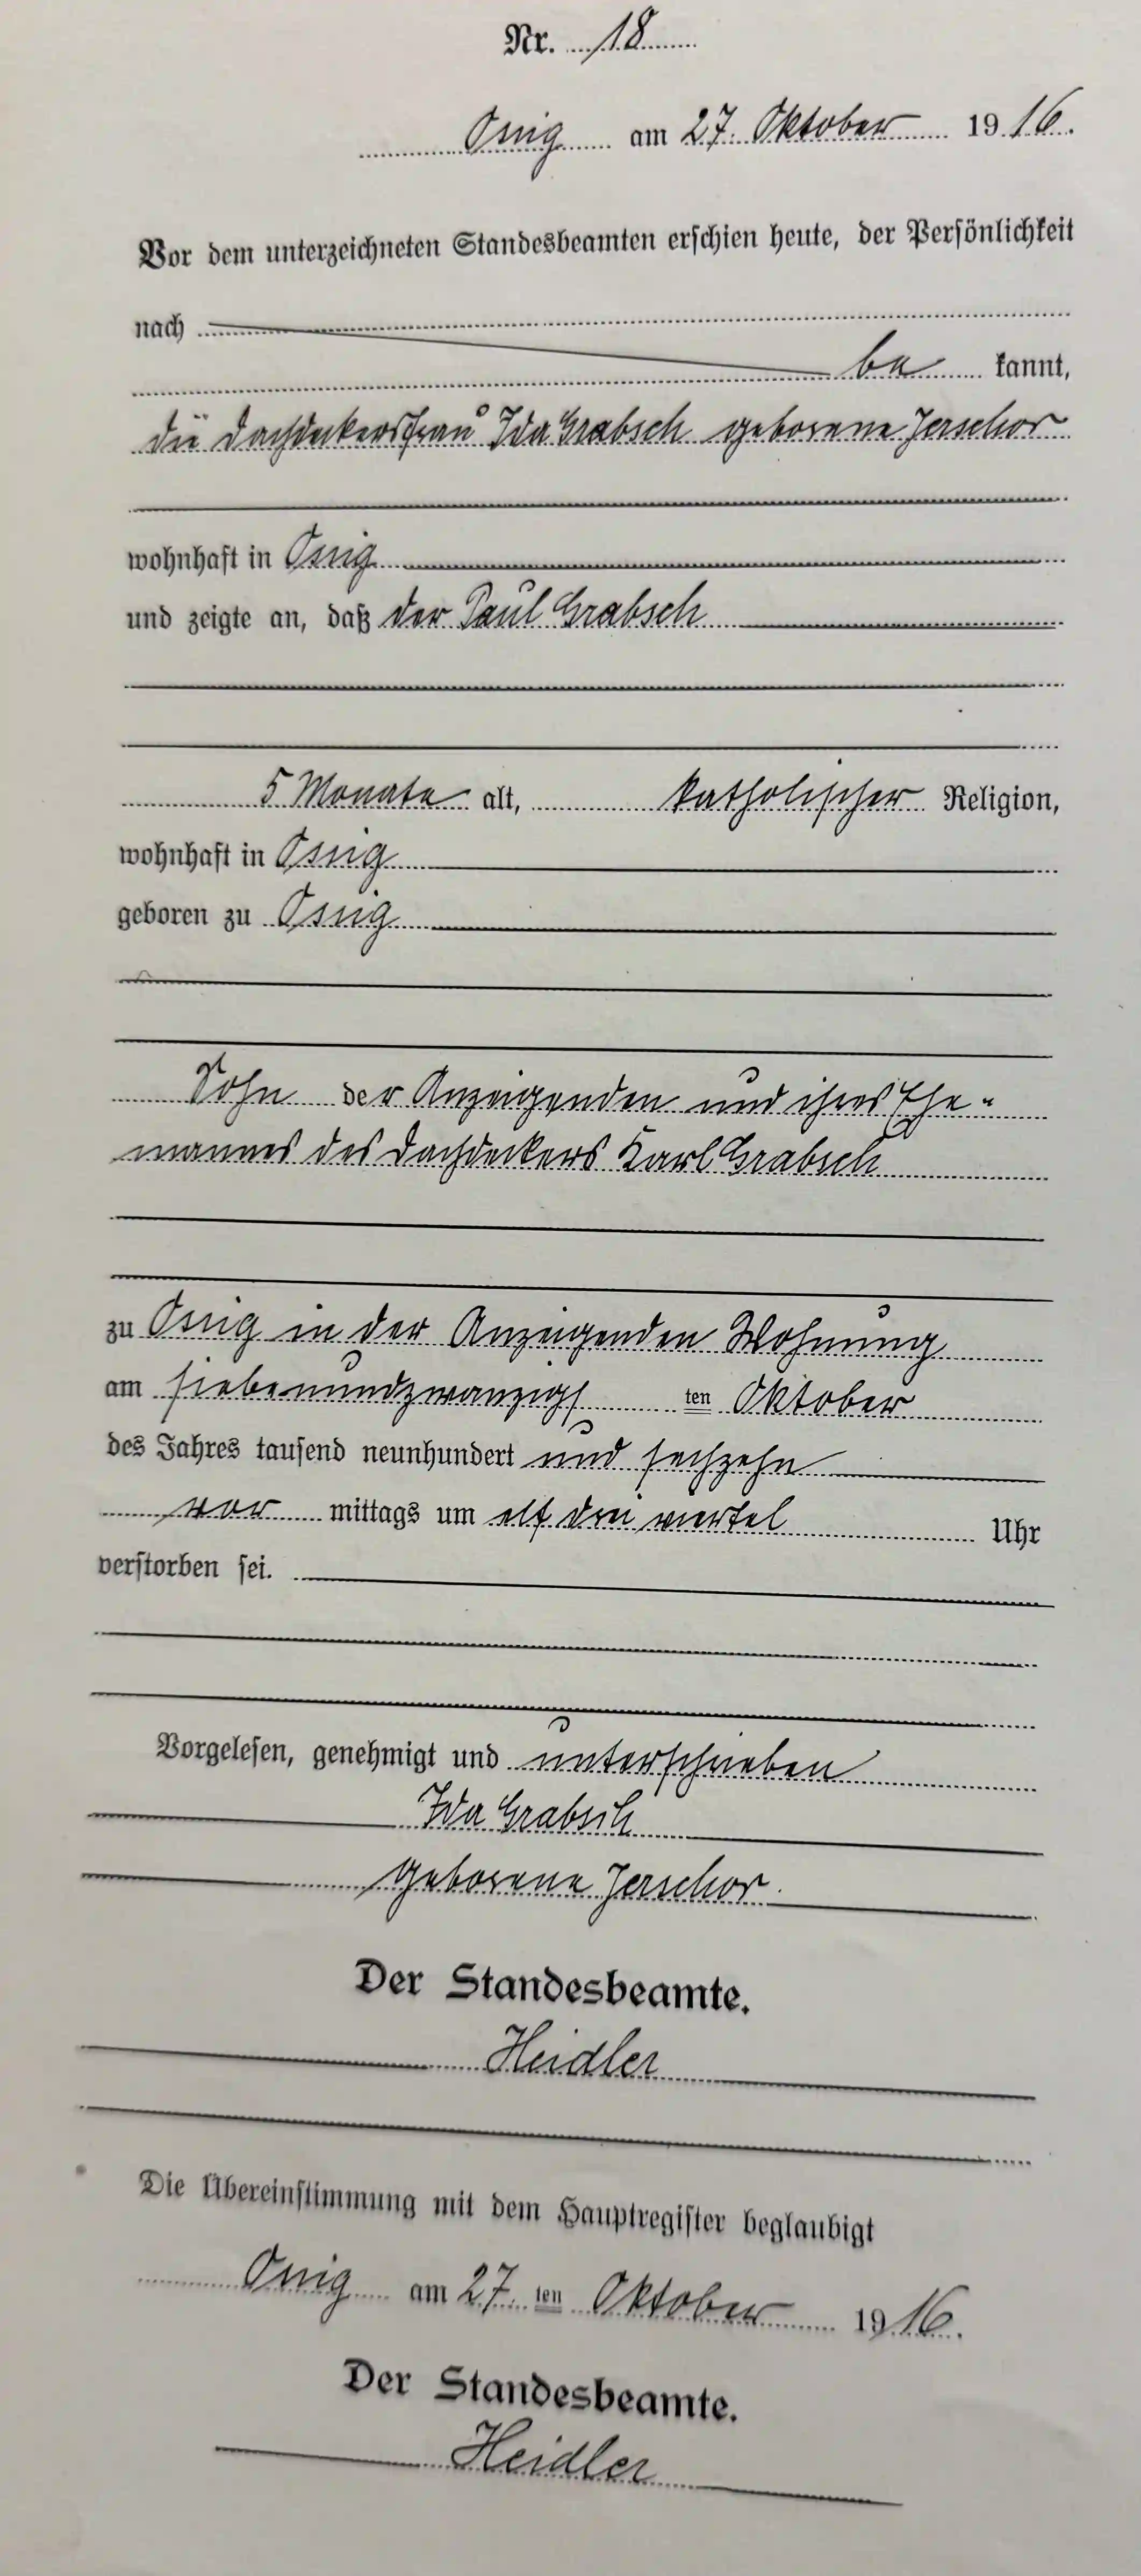 Nr. 18
Ossig am 27. Oktober 1916.
Vor dem unterzeichneten Standesbeamten erschien heute, der Persönlichkeit
nach
be kannt,
die Dachdeckersfrau Ida Grabsch geborene Jerschor
wohnhaft in Ossig
und zeigte an, daß der Paul Grabsch
5 Monate alt, katholischer Religion,
wohnhaft in Ossig
geboren zu Ossig
Sohn der Anzeigenden und ihres Ehe-
mannes des Dachdeckers Karl Grabsch
zu Ossig in der Anzeigenden Wohnung
am siebenundzwanzigs ten Oktober
des Jahres tausend neunhundert und sechzehn
vor mittags um elf drei viertel Uhr
verstorben sei.
Vorgelesen, genehmigt und unterschrieben
Ida Grabsch
geborene Jerschor.
Der Standesbeamte.
Heidler
Die Übereinstimmung mit dem Hauptregister beglaubigt
Ossig am 27. ten Oktober 1916.
Der Standesbeamte.
Heidler